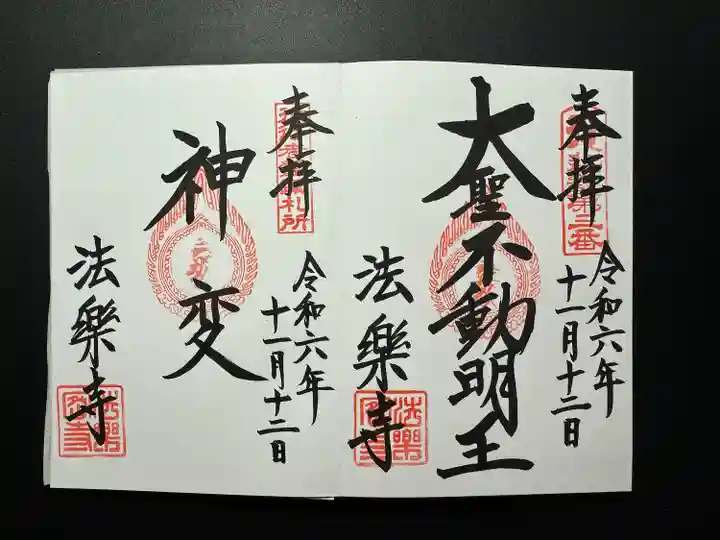 奉拝
令和六年
十一月十二日
大聖不動明王
法樂寺
奉拝
令和六年
十一月十二日
神変
法樂寺